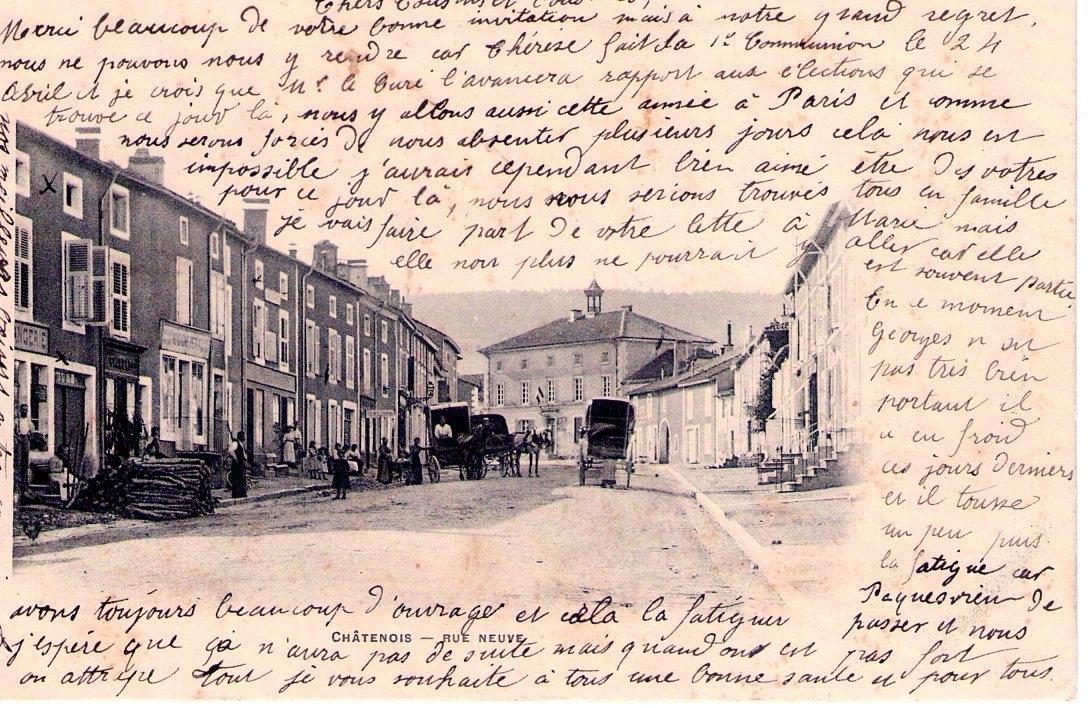 Chers Cousins et
Merci beaucoup de votre bonne invitation mais à notre grand regret,
nous ne pouvons nous y rendre car Thérèse fait la 1e Communion le 24
Avril et je crois que Mr le Curé l'avancera rapport aux élections qui se
trouve ce jour là, nous y allons aussi cette année à Paris et comme
nous serons forcés de nous absenter plusieurs jours cela nous est
impossible j'aurais cependant bien aimé être des votres
pour ce jour là, nous nous serions trouvés tous en famille
je vais faire part de votre lettre à Marie mais
elle non plus ne pourrait y aller car elle
est souvent partie
En ce moment
Georges n est
pas très bien
portant il
a eu froid
ces jours derniers
et il tousse
un peu puis
la fatigue car
Paques vien de
passer et nous
avons toujours beaucoup d'ouvrage et cela la fatiguer
CHÂTENOIS — RUE NEUVE
j'espère que ça n'aura pas de suite mais quand on est pas fort
on attrape tout je vous souhaite à tous une bonne santé et pour tous.